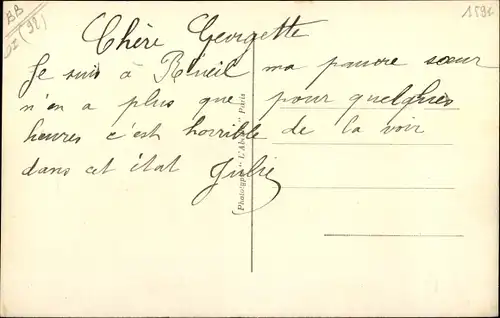 BB
(92)
159x
Chère Georgette
Je suis à Rueil ma pauvre sœur
n'en a plus que pour quelques
heures c'est horrible de la voir
dans cet état Julie
Photograph. "L'Abeille" Paris